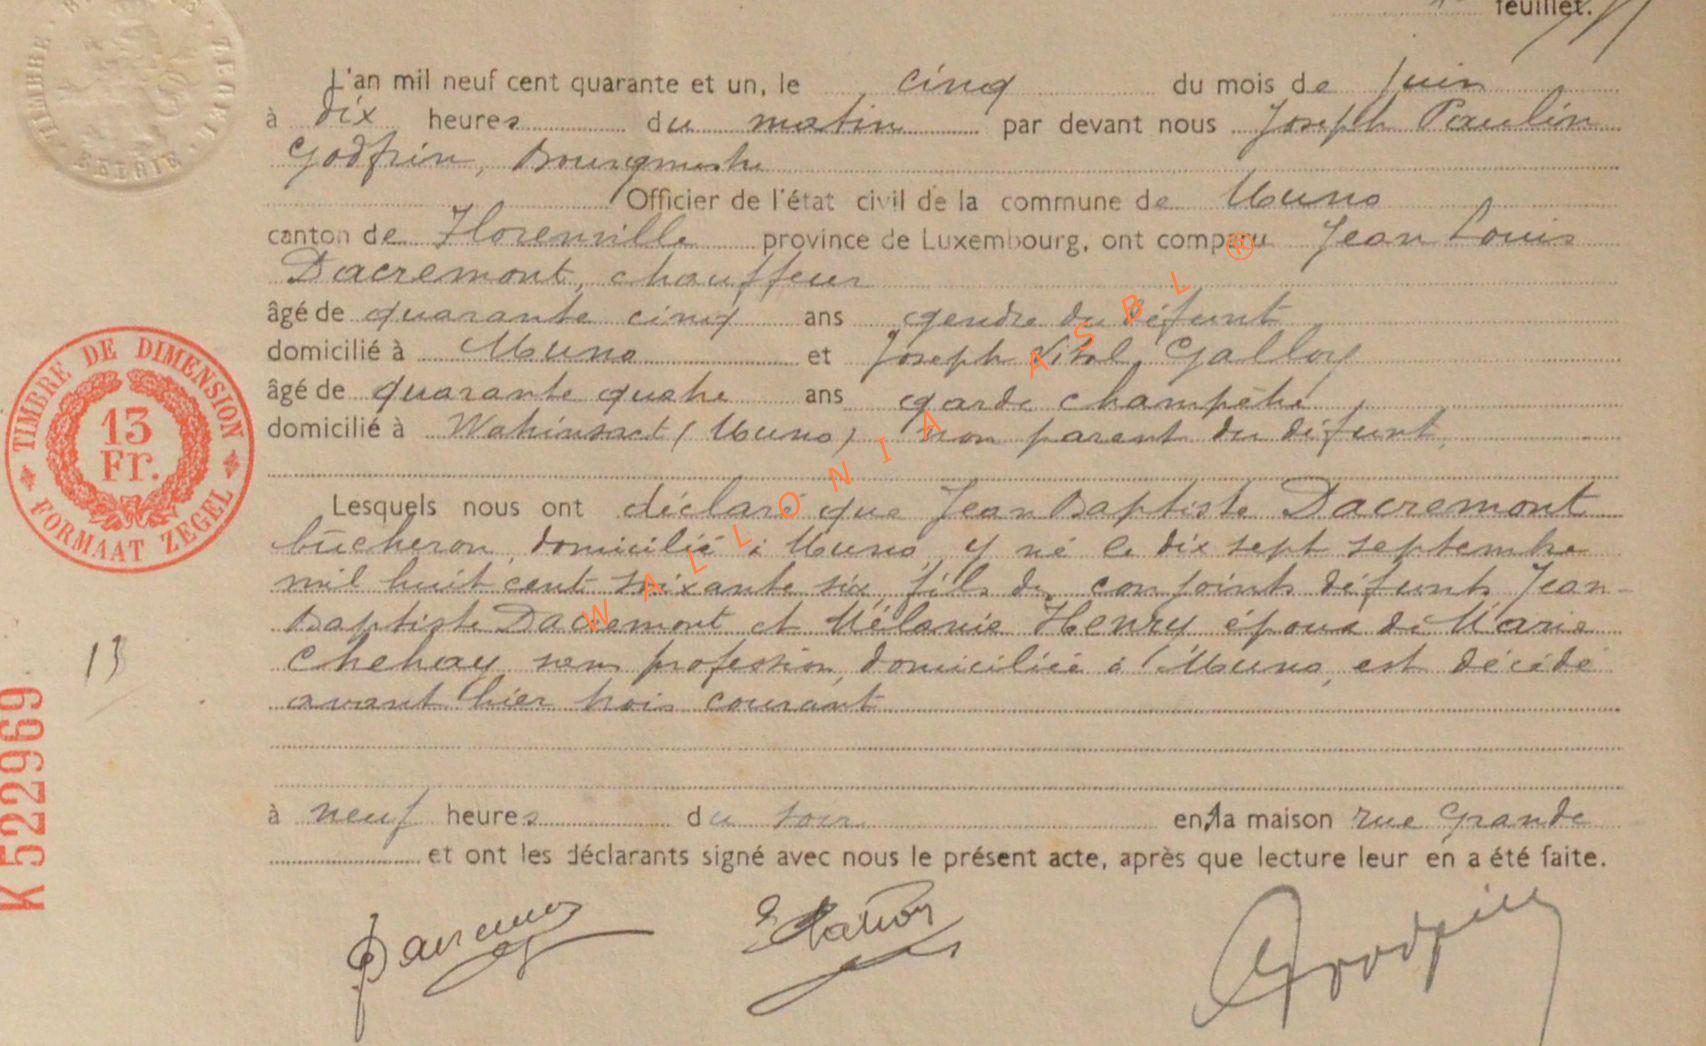 feuillet.
L'an mil neuf cent quarante et un, le cinq du mois de juin
à dix heures du matin par devant nous Joseph Paulin
Godfrin, Bourgmestre
Officier de l'état civil de la commune de Muno
canton de Florenville province de Luxembourg, ont comparu Jean Louis
Dacremont, chauffeur
âgé de quarante cinq ans gendre du défunt
domicilié à Muno et Joseph Vital Galloy
âgé de quarante quatre ans garde champêtre
domicilié à Watrinsart (Muno) non parent du défunt,
Lesquels nous ont déclaré que Jean Baptiste Dacremont
bûcheron, domicilié à Muno, y né le dix sept septembre
mil huit cent soixante six, fils des conjoints défunts Jean-
Baptiste Dacremont et Mélanie Henry époux de Marie
Chehay, sans profession, domiciliée à Muno, est décédé
avant hier trois courant
à neuf heures du soir en la maison rue Grande
et ont les déclarants signé avec nous le présent acte, après que lecture leur en a été faite.
Godfrin
TIMBRE DE DIMENSION
13
Fr.
FORMAAT ZEGEL
13
K 522969
TIMBRE
ZEGEL
BELGIE
WALLONIA ASBL ®